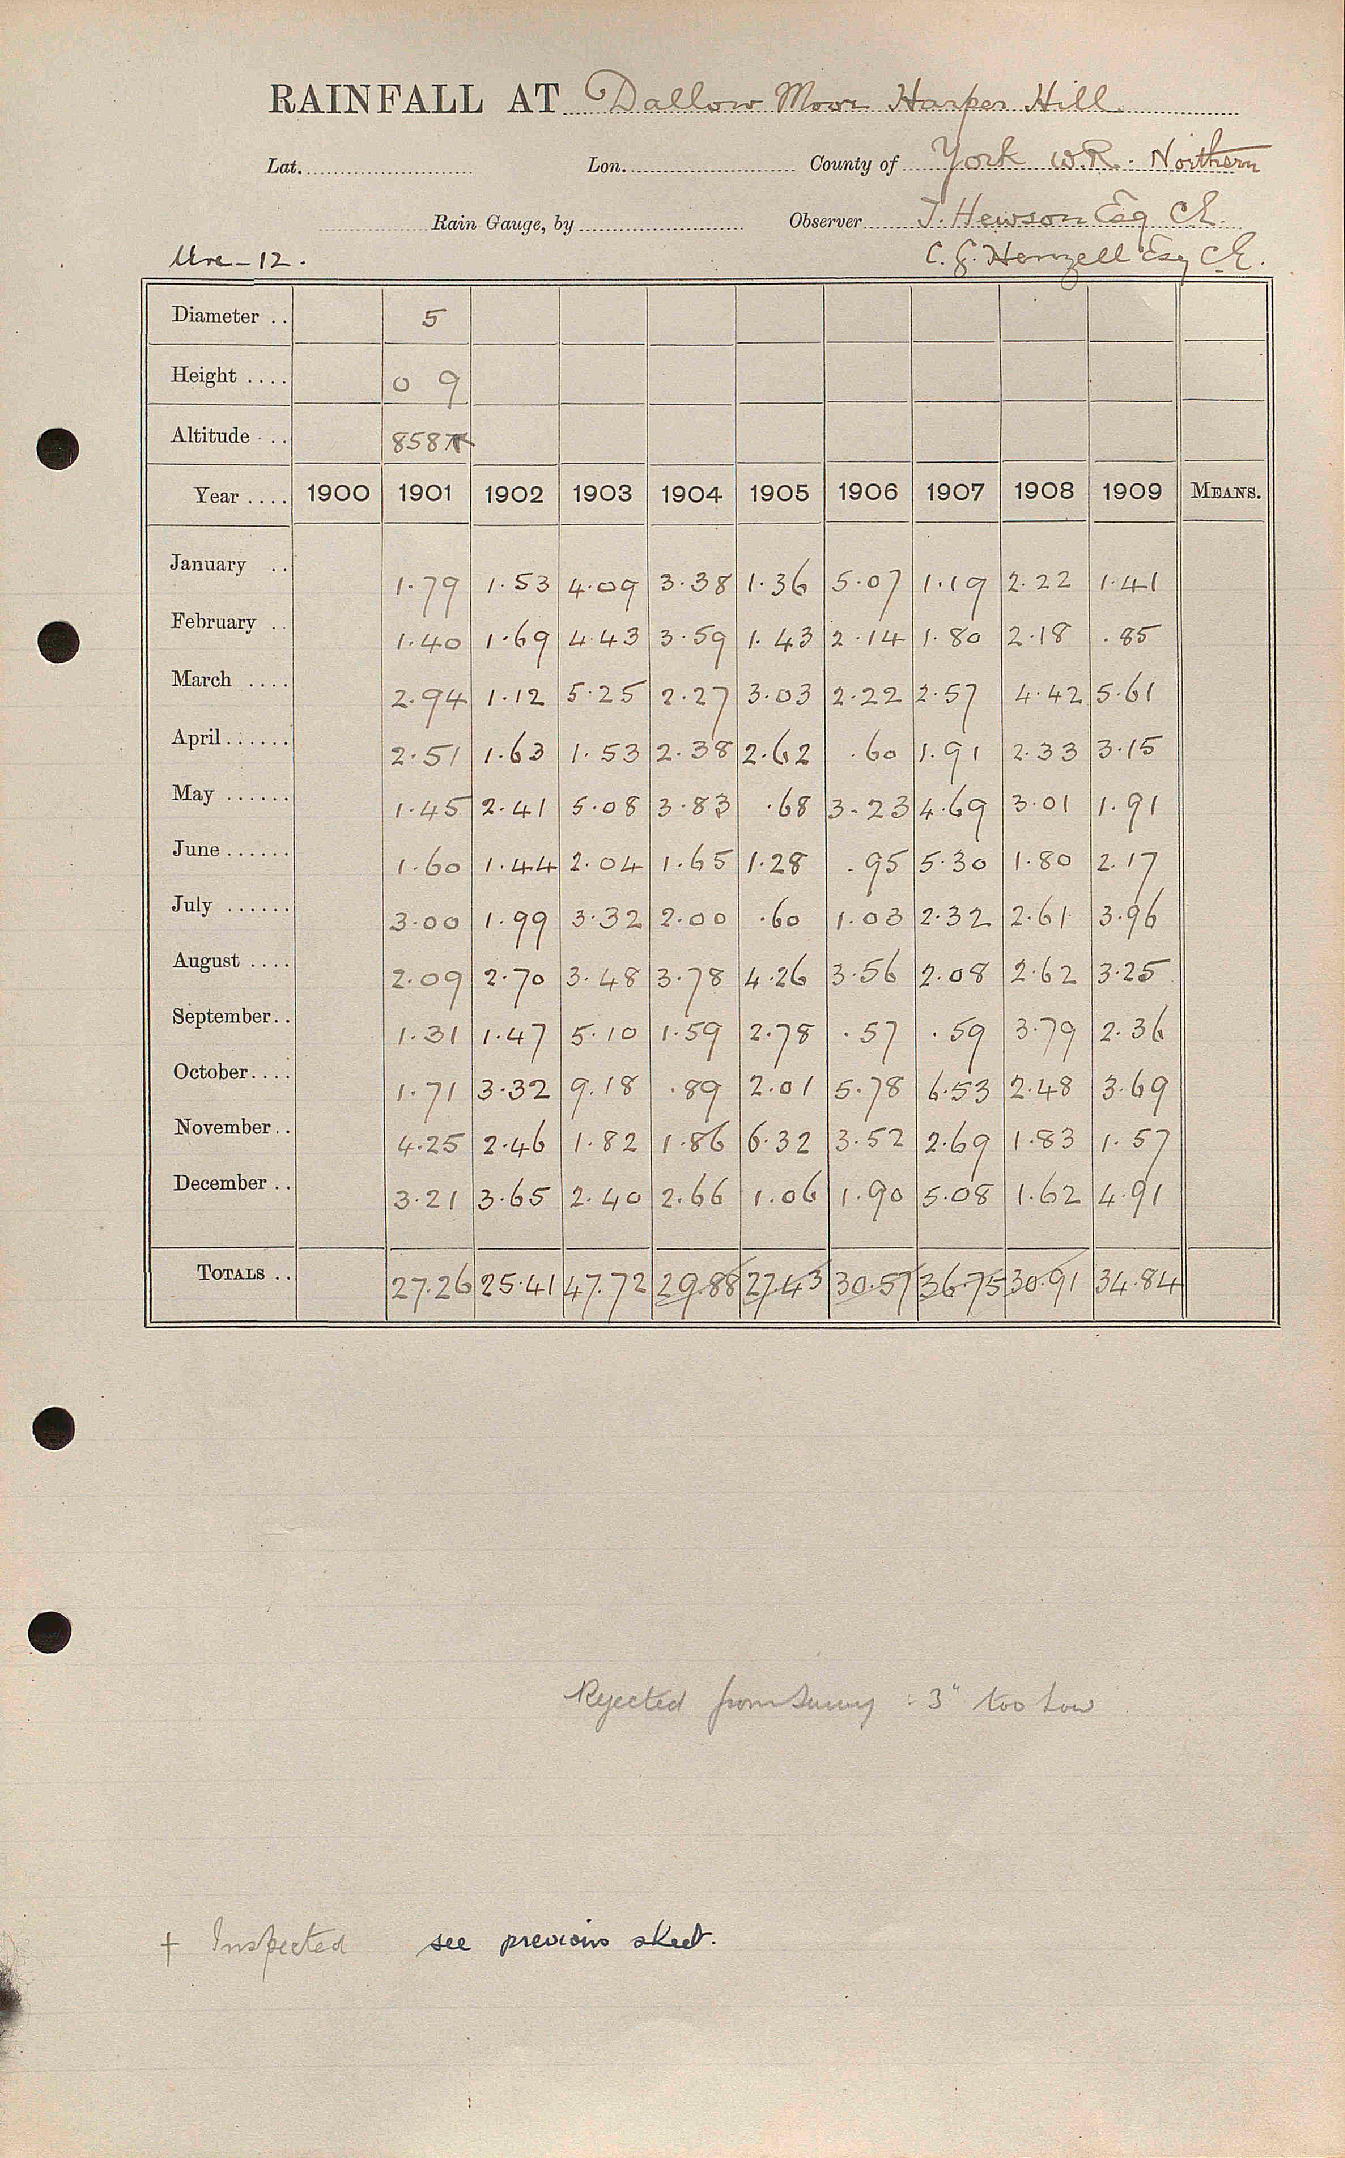 RAINFALL AT Dallow Moor Harper Hill
Lat. Lon. County of York W.R. Northern
Rain Gauge, by Observer T. Hewson Esq C.E.
Ure - 12. C. G. Henzell Esq C.E.
Diameter .. 5
Height .... 0 9
Altitude .. 858
Year .... 1900 1901 1902 1903 1904 1905 1906 1907 1908 1909 MEANS.
January .. 1.79 1.53 4.09 3.38 1.36 5.07 1.19 2.22 1.41
February .. 1.40 1.69 4.43 3.59 1.43 2.14 1.80 2.18 .85
March .... 2.94 1.12 5.25 2.27 3.03 2.22 2.57 4.42 5.61
April...... 2.51 1.63 1.53 2.38 2.62 .60 1.91 2.33 3.15
May ...... 1.45 2.41 5.08 3.83 .68 3.23 4.69 3.01 1.91
June...... 1.60 1.44 2.04 1.65 1.28 .95 5.30 1.80 2.17
July ...... 3.00 1.99 3.32 2.00 .60 1.03 2.32 2.61 3.96
August .... 2.09 2.70 3.48 3.78 4.26 3.56 2.08 2.62 3.25
September.. 1.31 1.47 5.10 1.59 2.78 .57 .59 3.79 2.36
October.... 1.71 3.32 9.18 .89 2.01 5.78 6.53 2.48 3.69
November.. 4.25 2.46 1.82 1.86 6.32 3.52 2.69 1.83 1.57
December .. 3.21 3.65 2.40 2.66 1.06 1.90 5.08 1.62 4.91
TOTALS .. 27.26 25.41 47.72 29.88 27.43 30.57 36.75 30.91 34.84
Rejected from Survey : 3" too low
† Inspected see previous sheet.